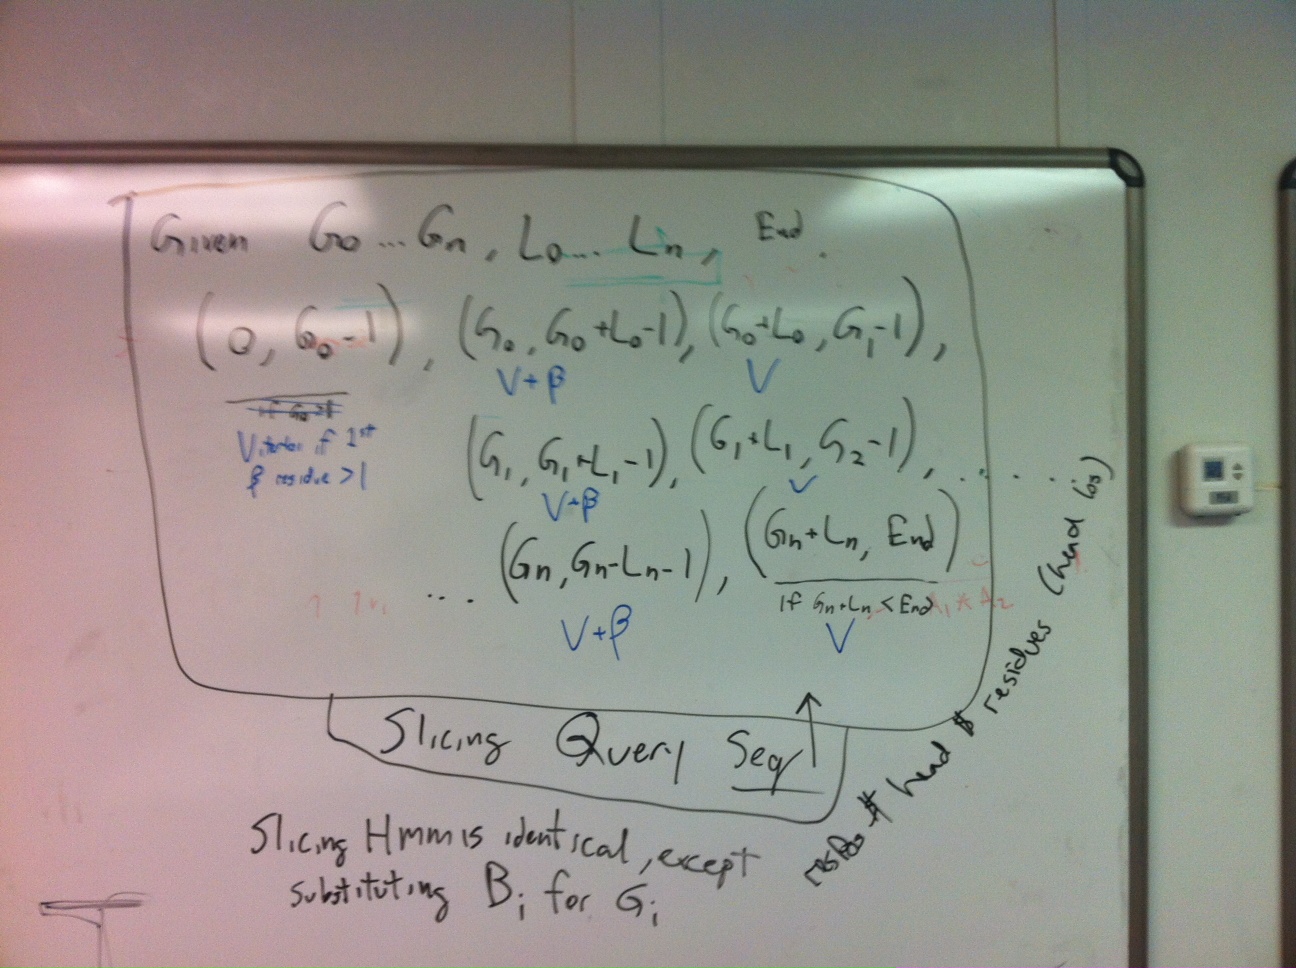 Given G0 ... Gn, L0 ... Ln, End.
(0, G0-1), (G0, G0+L0-1), (G0+L0, G1-1),
V+β V
if G0>1
Viterbi if 1st
β residue >1
(G1, G1+L1-1), (G1+L1, G2-1), . . . .
V+β V
.... (Gn, Gn-Ln-1), (Gn+Ln, End)
if Gn+Ln < End
V+β V
Slicing Query Seq
Slicing Hmm is identical, except
substituting Bi for Gi
head $ residues (head